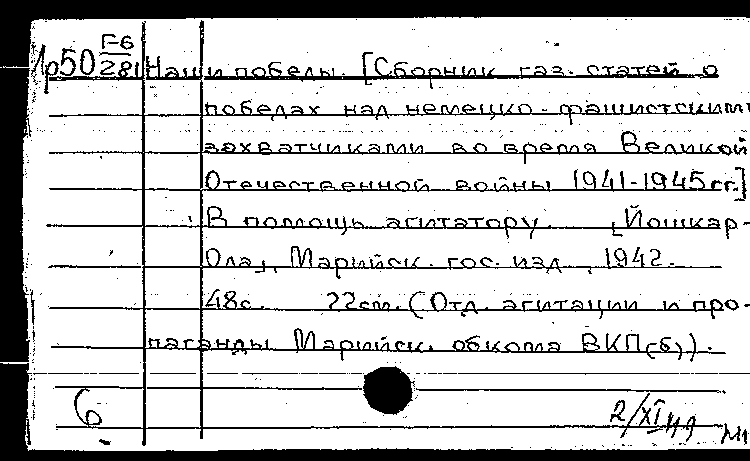 1р50 Г-6
281 Наши победы. [Сборник газ. статей о
победах над немецко-фашистскими
захватчиками во время Великой
Отечественной войны 1941-1945гг.]
В помощь агитатору. [Йошкар-
Ола], Марийск. гос. изд., 1942.
48с. 22см. (Отд. агитации и про-
паганды Марийск. обкома ВКП(б)).
6
2/XI 49